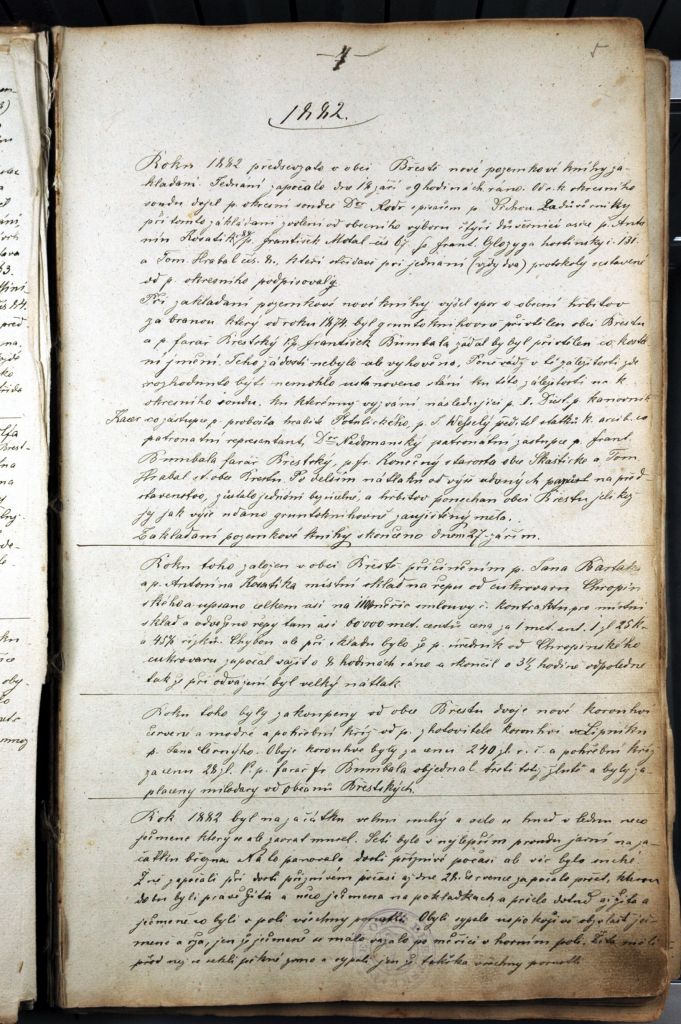 4
5
1882.
Roku 1882 předsevzato v obci Břestě nové pozemkové knihy za-
kládání. Jednání započalo dne 18 září o 9 hodinách ráno. Od c. k. okresního
soudu dojel p. okresní soudce Dor Rodr s písařem p. Za důvěrníky
při tomto zakládání zvoleni od obecního výboru čtyři důvěrníci p. Anto-
nín Kosatík p. František Motal čís 67, p. Frant. Glozyga hostinský č. 131.
a Tom. Hrabal čís. 8. kteří střídavě při jednání (vždy dva) protokoly sestavené
od p. okresního podpisovaly.
Při zakládání pozemkové nové knihy vyšel spor o obecní hřbitov
za branou který od roku 1874. byl gruntoknihovně přivtělen obci Břestu
a p. farář Břestský p. František Bumbala žádal by byl přivtělen co kostel-
ní jmění. Jeho žádosti nebylo ale vyhověno. v té záležitosti zde
rozhodnuto býti nemohlo ustanoveno stání ku této záležitosti na k.
okresního soudu. Ku kterému vyzváni následující p. I. kanovník
co zástupce p. probošta hraběte Potulického, p. T. Wesselý ředitel statků k. arcib. co
patronátní representant, Dor Nedomanský patronátní zástupce p. Frant.
Bumbala farář Břestský, p. Jr. Konečný starosta obce Skaštické a Tom.
Hrabal st. obce Břestu. Po delším nátlaku od výše udaných na před-
stavenstvo, zůstalo jednání bezúčelné, a hřbitov ponechán obci Břestu jelikož
jej jak výše udáno gruntoknihovně zaujištěný měla.
Zakládání pozemkové knihy skončeno dnem 27. zářím.
Roku toho založen v obci Břestě přičiněním p. Jana Bartáka
a p. Antonína Kosatíka místní sklad na řepu od cukrovaru Chropiň
ského a upsáno celkem asi na měřic smlouvy č. kontraktu pro místní
sklad a odvezeno řepy tam asi 60000 met. centů cena za 1 met. cent. 1 zl 25 k.
a 45% řízků. Chybou ale při skladu bylo že p. úředník od Chropinského
cukrovaru započal vážit o 8 hodinách ráno a skončil o 3½ hodině odpoledne
tak že při odvážení byl velký nátlak.
Roku toho byly zakoupeny od obce Břestu dvoje nové korouhvi
červené a modré a pohřební kříž od p. zhotovitele korouhví v Lipníku
p. Jana Černýho. Oboje korouhve byly za cenu 240 zl. r. č. a pohřební kříž
za cenu 28 zl. V. p. farář Jr Bumbala objednal třetí totiž žluté a byly za-
placeny milodary od občanů Břestských.
Rok 1882 byl na začátku velmi suchý a selo se hned v lednu něco
ječmene který se ale zaorat musel. Setí bylo v nejlepším proudu jarní na za-
čátku března. Na to panovalo dosti příznivé počasí ale víc bylo suché.
Žně započaly při dosti příznivém počasí až dne 28. července započalo pršet, kterou
dobu byly pravé žita a něco ječmena na pokládkách a pršelo dotud až žita a
ječmené co byli v poli všechny porostli. Obylí sypalo neobzvlášť ječ-
mené a rež, jen že ječmené se málo vázalo po měřici v horním poli. Žita měli
před pěkné zrno a vypali jen že takřka všechny porostli.